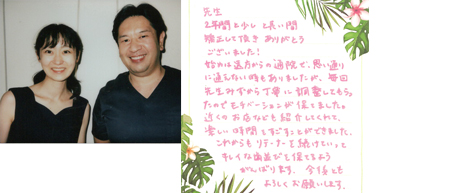 先生
2年間と少しと長い間
矯正して頂き ありがとう
ございました！
始めは遠方からの通院で、思い通り
に通えない時もありましたが、毎回
先生みずから丁寧に調整してもらっ
たのでモチベーションが保てました。
近くのお店なども紹介してくれて、
楽しい時間をすごすことができました。
これからもリテーナーを続けていって
キレイな歯並びを保てるよう
がんばります。今後とも
よろしくお願いします。